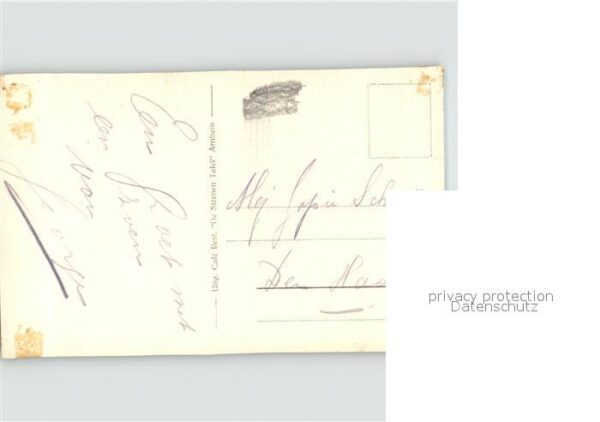 Een Groet met
een zoen
van
Uitg. Café Rest. "De Steenen Tafel" Arnhem
Mej Jopie Sch
Den Haa
privacy protection
Datenschutz